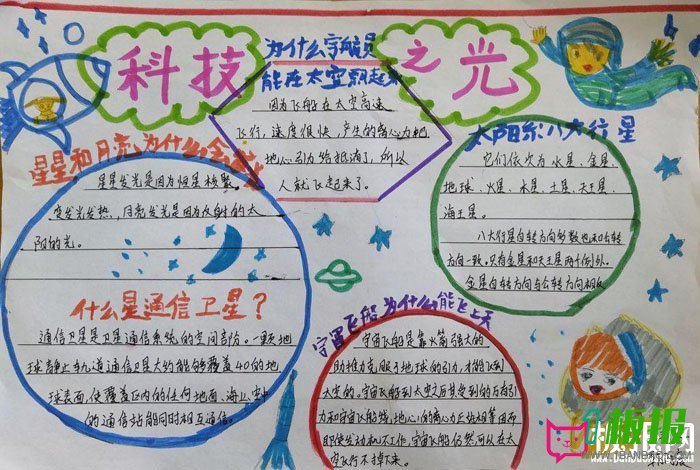 科技之光
为什么宇航员
能在太空飘起来
因为飞船在太空高速
飞行,速度很快,产生的离心力把
地心引力给抵消了,所以
人就飞起来了。
星星和月亮为什么会
星星发光是因为恒星核聚
变发光发热,月亮发光是因为反射的太
阳的光。
什么是通信卫星?
通信卫星是卫星通信系统的空间部分。一颗地
球静止轨道通信卫星大约能够覆盖40的地
球表面,使覆盖区内的任何地面、海上、空中
的通信站能同时相互通信。
太阳系八大行星
它们依次为水星、金星、
地球、火星、木星、土星、天王星、
海王星。
八大行星自转方向多数也和公转
方向一致。只有金星和天王星两个例外。
金星自转方向与公转方向相反
宇宙飞船为什么能飞上天
宇宙飞船是靠火箭强大的
助推力克服了地球的引力,才能飞到
太空的。宇宙飞船到太空之后其受到的万有引
力和宇宙飞船绕地心的离心力正好相等因而
即使发动机不工作,宇宙飞船仍然可以在太
空飞行不掉下来。
板报